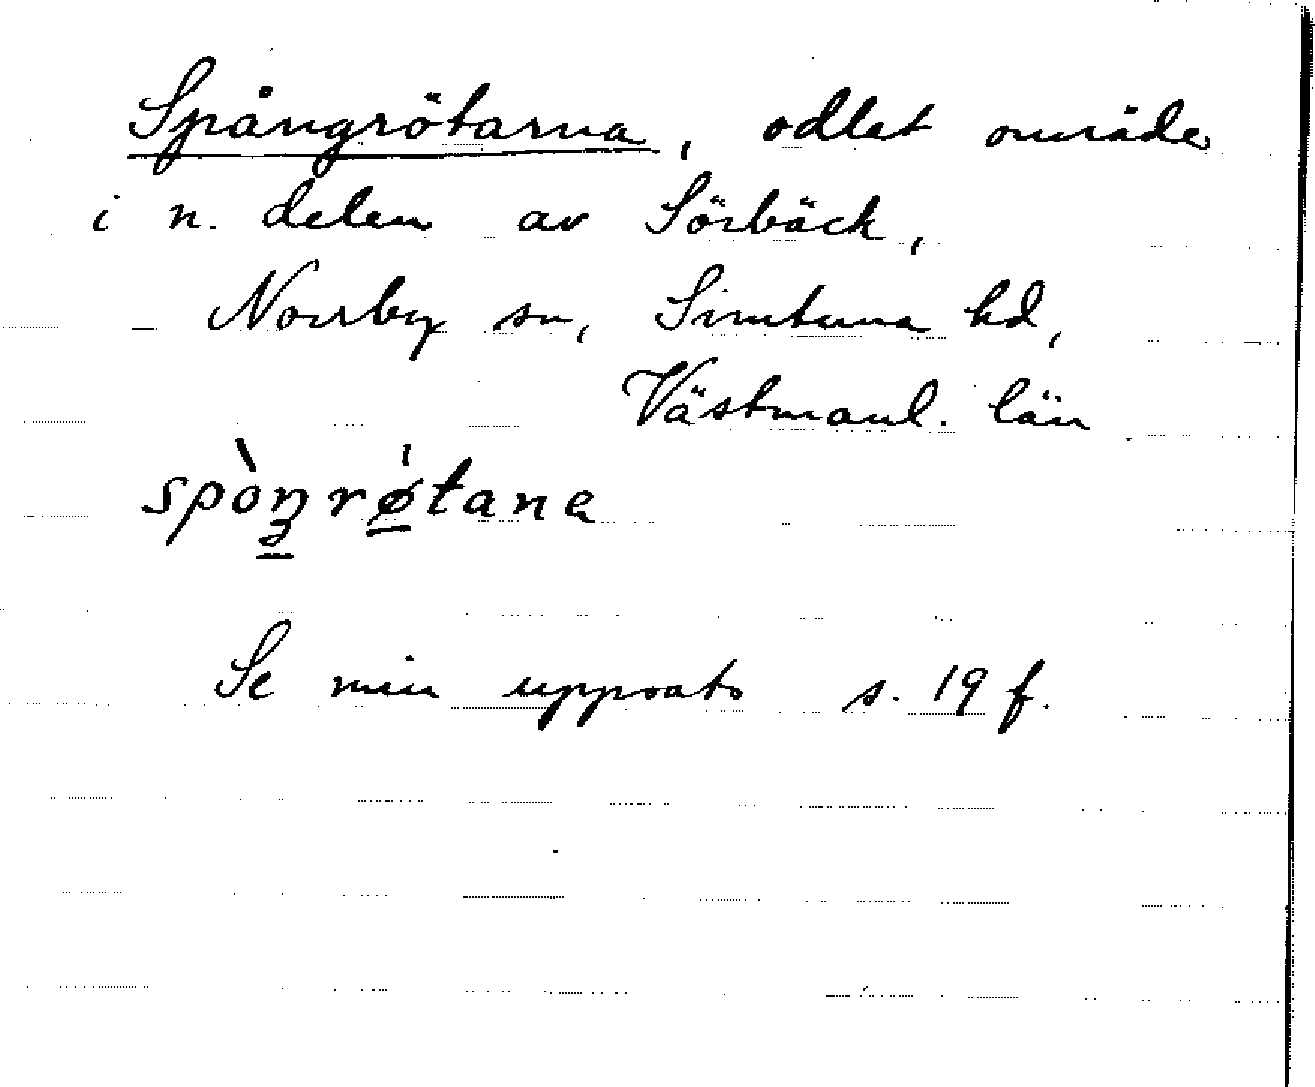 Spångrötarna, odlat område
i n. delen av Sörbäck,
Norrby sn, Simtuna hd,
Västmanl. län
spòŋrø̀tana
Se min uppsats s. 19 f.